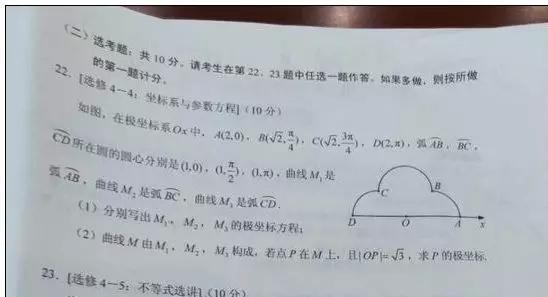 (二)选考题：共10分。请考生在第22、23题中任选一题作答。如果多做，则按所做
的第一题计分。
22．[选修4－4：坐标系与参数方程]（10分）
如图，在极坐标系Ox中，A(2,0)，B(√2,π/4)，C(√2,3π/4)，D(2,π)，弧AB，BC，
CD所在圆的圆心分别是(1,0)，(1,π/2)，(1,π)，曲线M₁是
弧AB，曲线M₂是弧BC，曲线M₃是弧CD．
C B
D O A x
（1）分别写出M₁，M₂，M₃的极坐标方程；
（2）曲线M由M₁，M₂，M₃构成，若点P在M上，且|OP|=√3，求P的极坐标．
23．[选修4－5：不等式选讲]（10分）